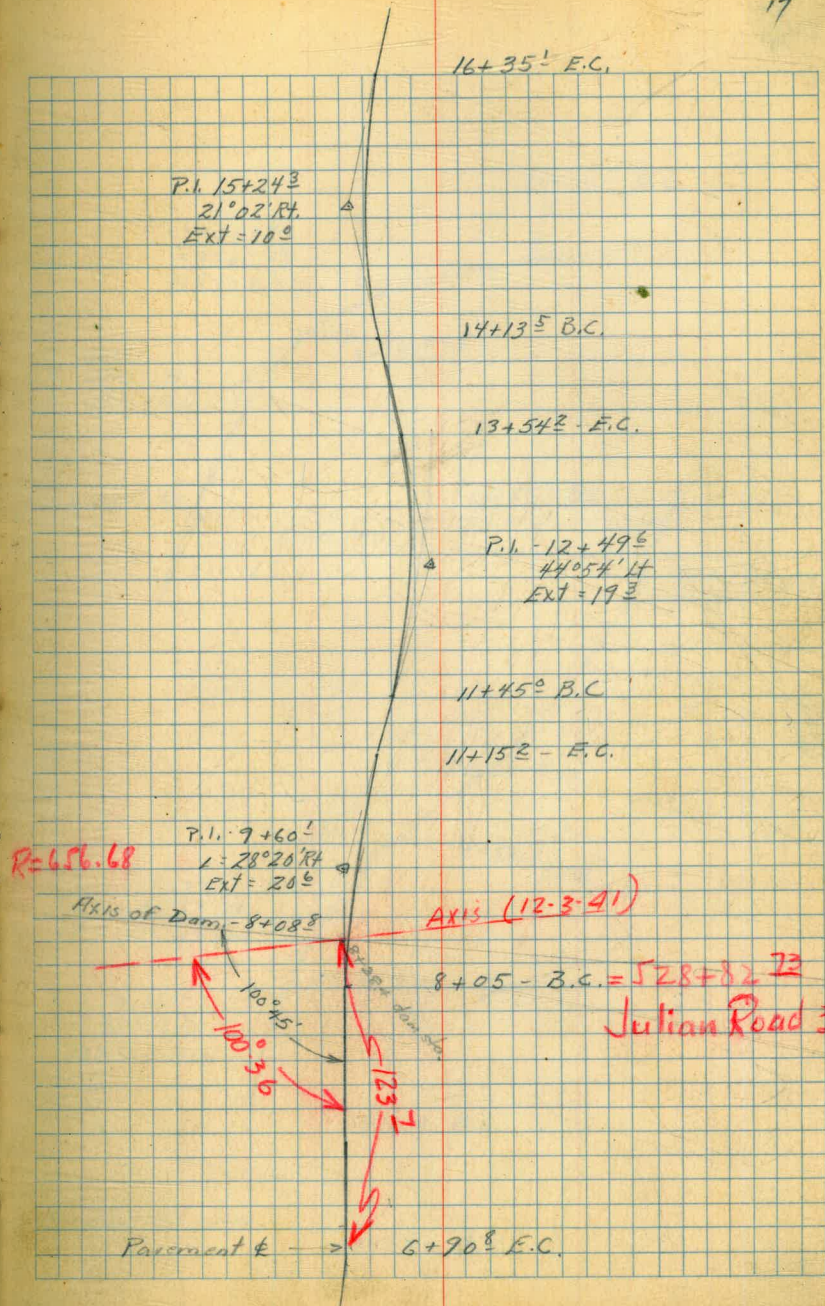 17
16+35¹ E.C.
P.I. 15+24³
21°02' Rt.
Ext = 10⁰
14+13⁵ B.C.
13+54² - E.C.
P.I. - 12+49⁶
44°54' Lt
Ext = 19³
11+45⁰ B.C
11+15² - E.C.
P.I. 9+60¹
R=656.68
L = 28°20' Rt
Ext = 20⁶
Axis of Dam - 8+08⁸
Axis (12-3-41)
8+05 - B.C. = 528+82 73
Julian Road
100°45'
100°36
dam sta.
123⁷
Pavement ℄ → 6+90⁸ E.C.